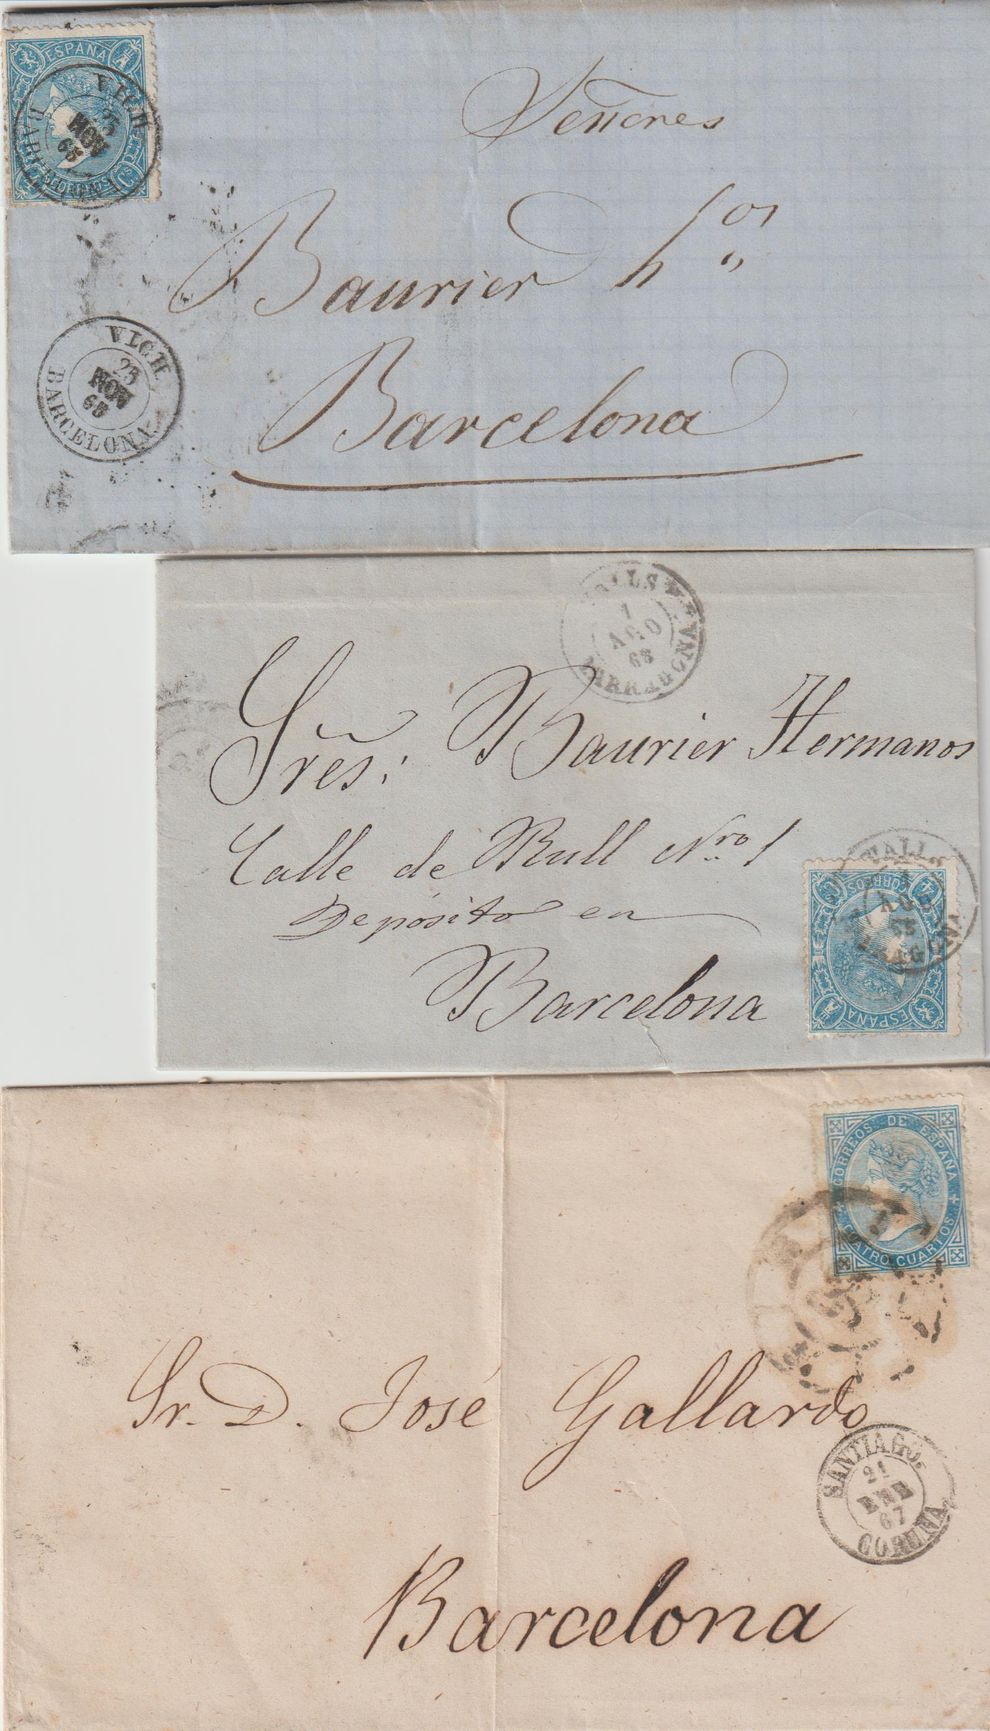 ESPAÑA
CORREOS
VICH
25
NOV
65
Señores
Baurier h.os
Barcelona
VICH
25
NOV
65
BARCELONA
VALLS
1
AGO
65
TARRAGONA
Sres: Baurier Hermanos
Calle de Rull Nro 1
Depósito en
Barcelona
VALLS
AGO
CORREOS
ESPAÑA
CORREOS DE ESPAÑA
CUATRO CUARTOS
Sr. D. José Gallardo
Barcelona
SANTIAGO.
21
ENE
67
CORUÑA.